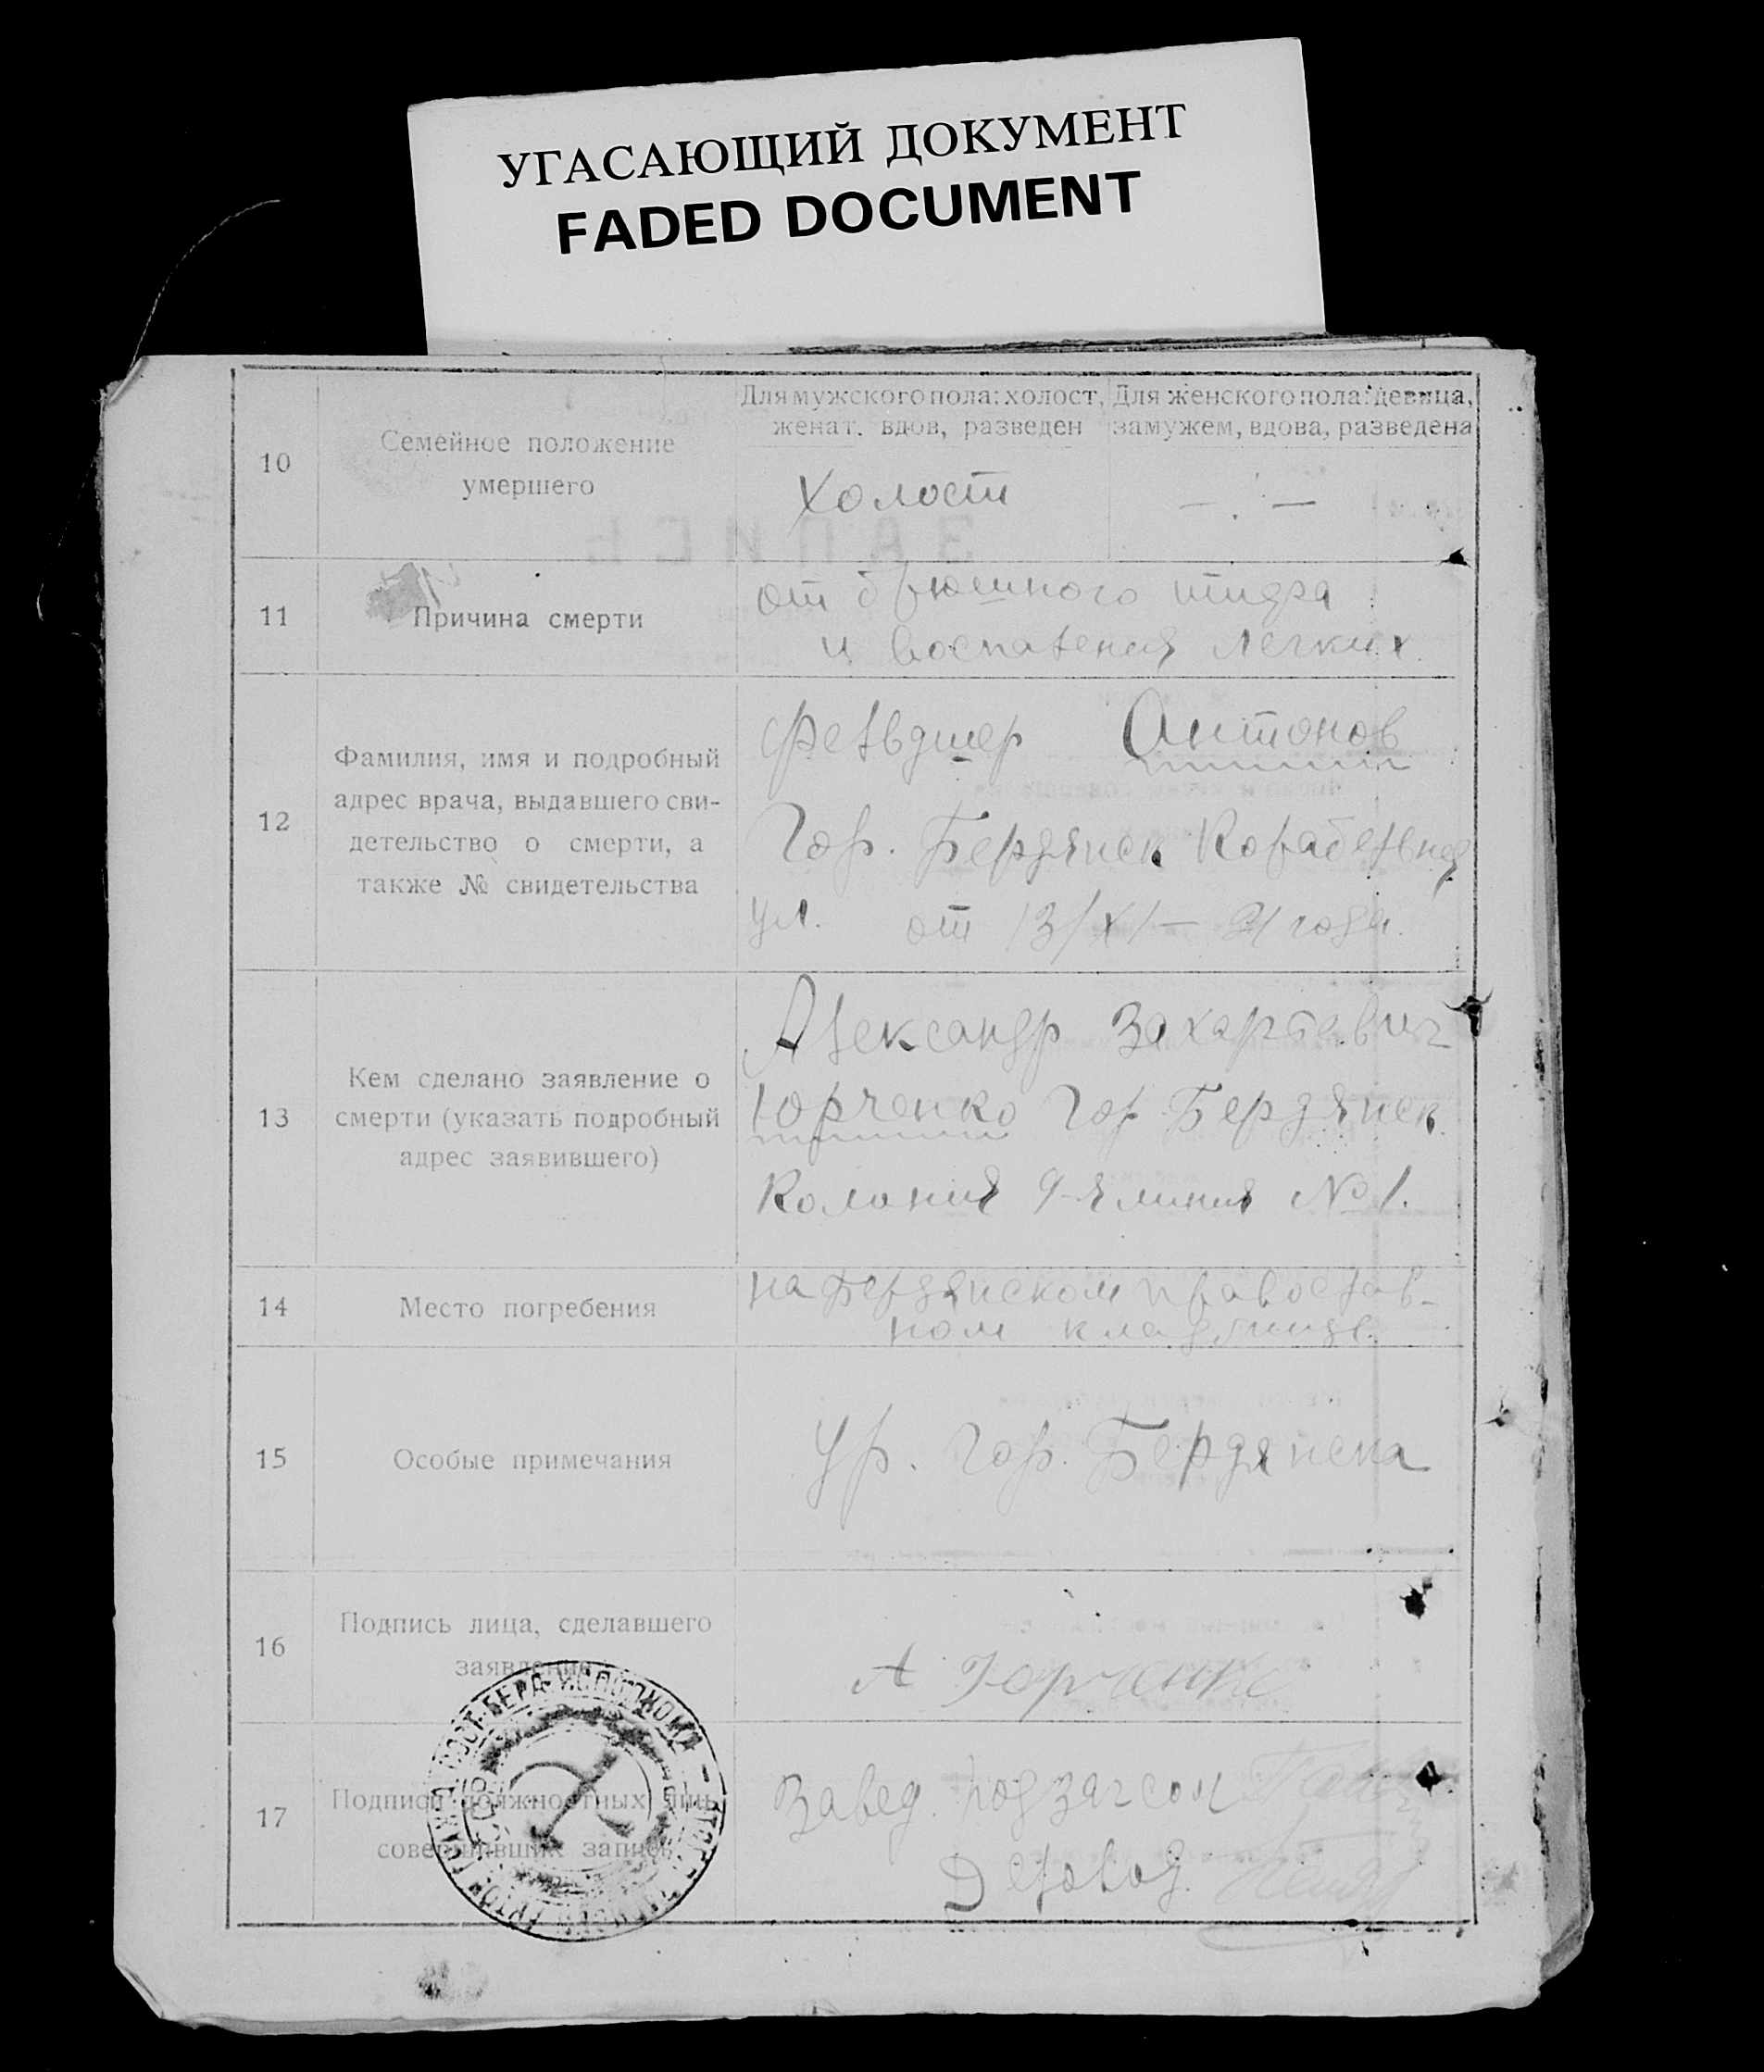 УГАСАЮЩИЙ ДОКУМЕНТ
FADED DOCUMENT
10
Семейное положение
умершего
Для мужского пола: холост,
женат, вдов, разведен
Для женского пола: девица,
замужем, вдова, разведена
Холост
— . —
ЗАПИСЬ
11
Причина смерти
от брюшного тифа
и воспаления легких.
12
Фамилия, имя и подробный
адрес врача, выдавшего сви-
детельство о смерти, а
также № свидетельства
Фельдшер Антонов
Гор. Бердянск Корабельная
ул. от 13/XI — 21 года.
13
Кем сделано заявление о
смерти (указать подробный
адрес заявившего)
Александр Захарьевич
Юрченко Гор. Бердянск
Колония 9-я линия № 1.
14
Место погребения
на Бердянском православ-
ном кладбище.
15
Особые примечания
Ур. гор. Бердянска
16
Подпись лица, сделавшего
заявление
А Юрченко
17
Подписи должностных лиц,
совершивших запись
Завед. подзагсом
Делопод.